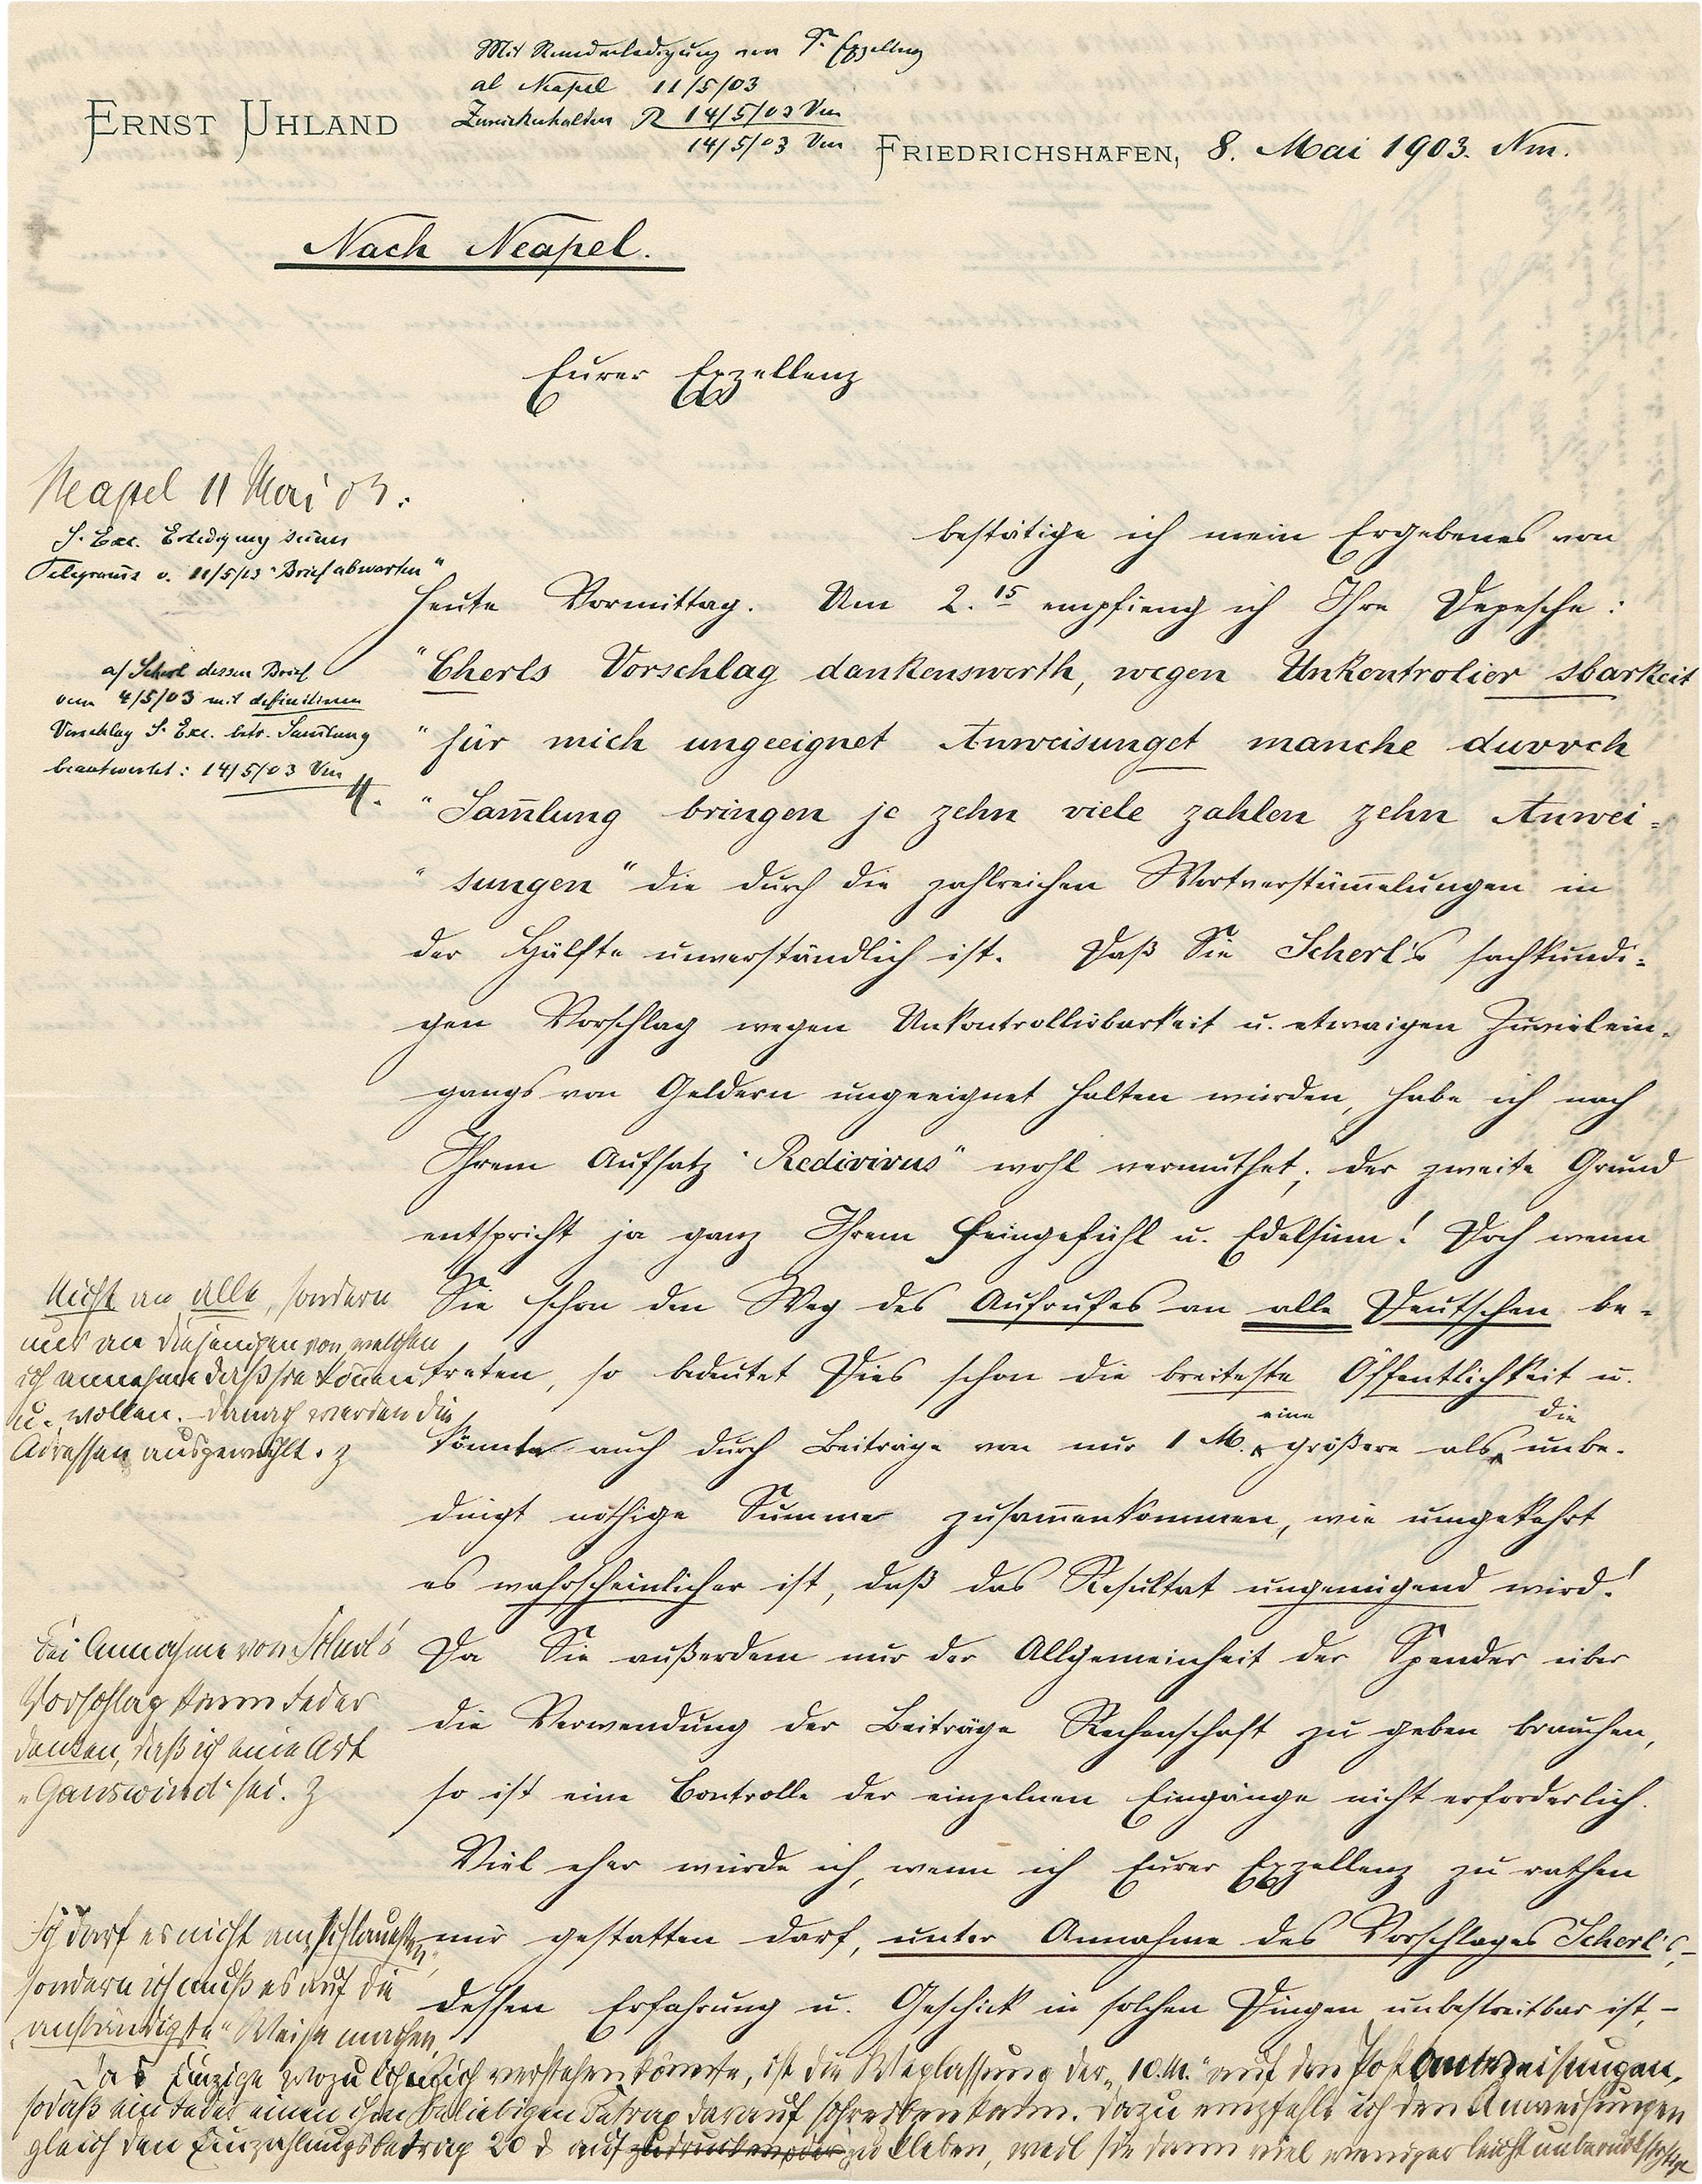 Mit Randerledigung von Sr. Exzellenz
ab Neapel 11/5/03
Zurückerhalten R 14/5/03 Vm
14/5/03 Vm
ERNST UHLAND
FRIEDRICHSHAFEN, 8. Mai 1903. Nm.
Nach Neapel.
Eurer Exzellenz
Neapel 11 Mai 03.
S. Exc. Erledigung seines
Telegramms v. 11/5/03 "Brief abwarten"
a/ Scherl dessen Brief
vom 4/5/03 mit definitivem
Vorschlag S. Exc. betr. Sam̄lung
beantwortet: 14/5/03 Vm
U.
bestätige ich mein Ergebenes von
heute Vormittag. Um 2.15 empfieng ich Ihre Depesche:
"Cherls Vorschlag dankenswerth, wegen Unkontrolier sbarkeit
"für mich ungeeignet Anweisunget manche duvvch
"Sam̄lung bringen je zehn viele zahlen zehn Anwei=
"sungen" die durch die zahlreichen Wortverstüm̄elungen in
der Hälfte unverständlich ist. Daß Sie Scherl's sachkundi=
gen Vorschlag wegen Unkontrollirbarkeit u. etwaigen Zuvielein=
gangs von Geldern ungeeignet halten würden, habe ich nach
Ihrem Aufsatz "Redivivus" wohl vermuthet; der zweite Grund
entspricht ja ganz Ihrem Feingefühl u. Edelsinn! Doch wenn
Sie schon den Weg des Aufrufes an alle Deutschen be=
treten, so bedeutet Dies schon die breiteste Öffentlichkeit u.
könnte auch durch Beiträge von nur 1 M. eine größere als die unbe=
dingt nöthige Summe zusam̄enkommen, wie umgekehrt
es wahrscheinlicher ist, daß das Resultat ungenügend wird!
Da Sie außerdem nur der Allgemeinheit der Spender über
die Verwendung der Beiträge Rechenschaft zu geben brauchen,
so ist eine Controlle der einzelnen Eingänge nicht erforderlich.
Viel eher würde ich, wenn ich Eurer Exzellenz zu rathen
mir gestatten darf, unter Annahme des Vorschlages Scherl's,–
dessen Erfahrung u. Geschick in solchen Dingen unbestreitbar ist,–
Nicht an alle, sondern
nur an diejenigen von welchen
ich annehme daß sie können
u. wollen. – Danach werden die
Adressen ausgewählt. Z
Bei Annahme von Scherl's
Vorschlag kann Jeder
denken, daß ich eine Art
"Ganswindt" sei. Z
Ich darf es nicht am "schlausten",
sondern ich muß es auf die
"anständigste" Weise machen.
Das Einzige wozu ich mich verstehen könnte, ist die Weglassung der "10. M." auf den Postanweisungen,
sodaß ein Jeder einen ihm beliebigen Betrag darauf schreiben kann. Dazu empfehle ich den Anweisungen
gleich den Einzahlungsbetrag 20 d auf zudrucken oder zu kleben, weil sie dann viel weniger leicht unberücksichtigt